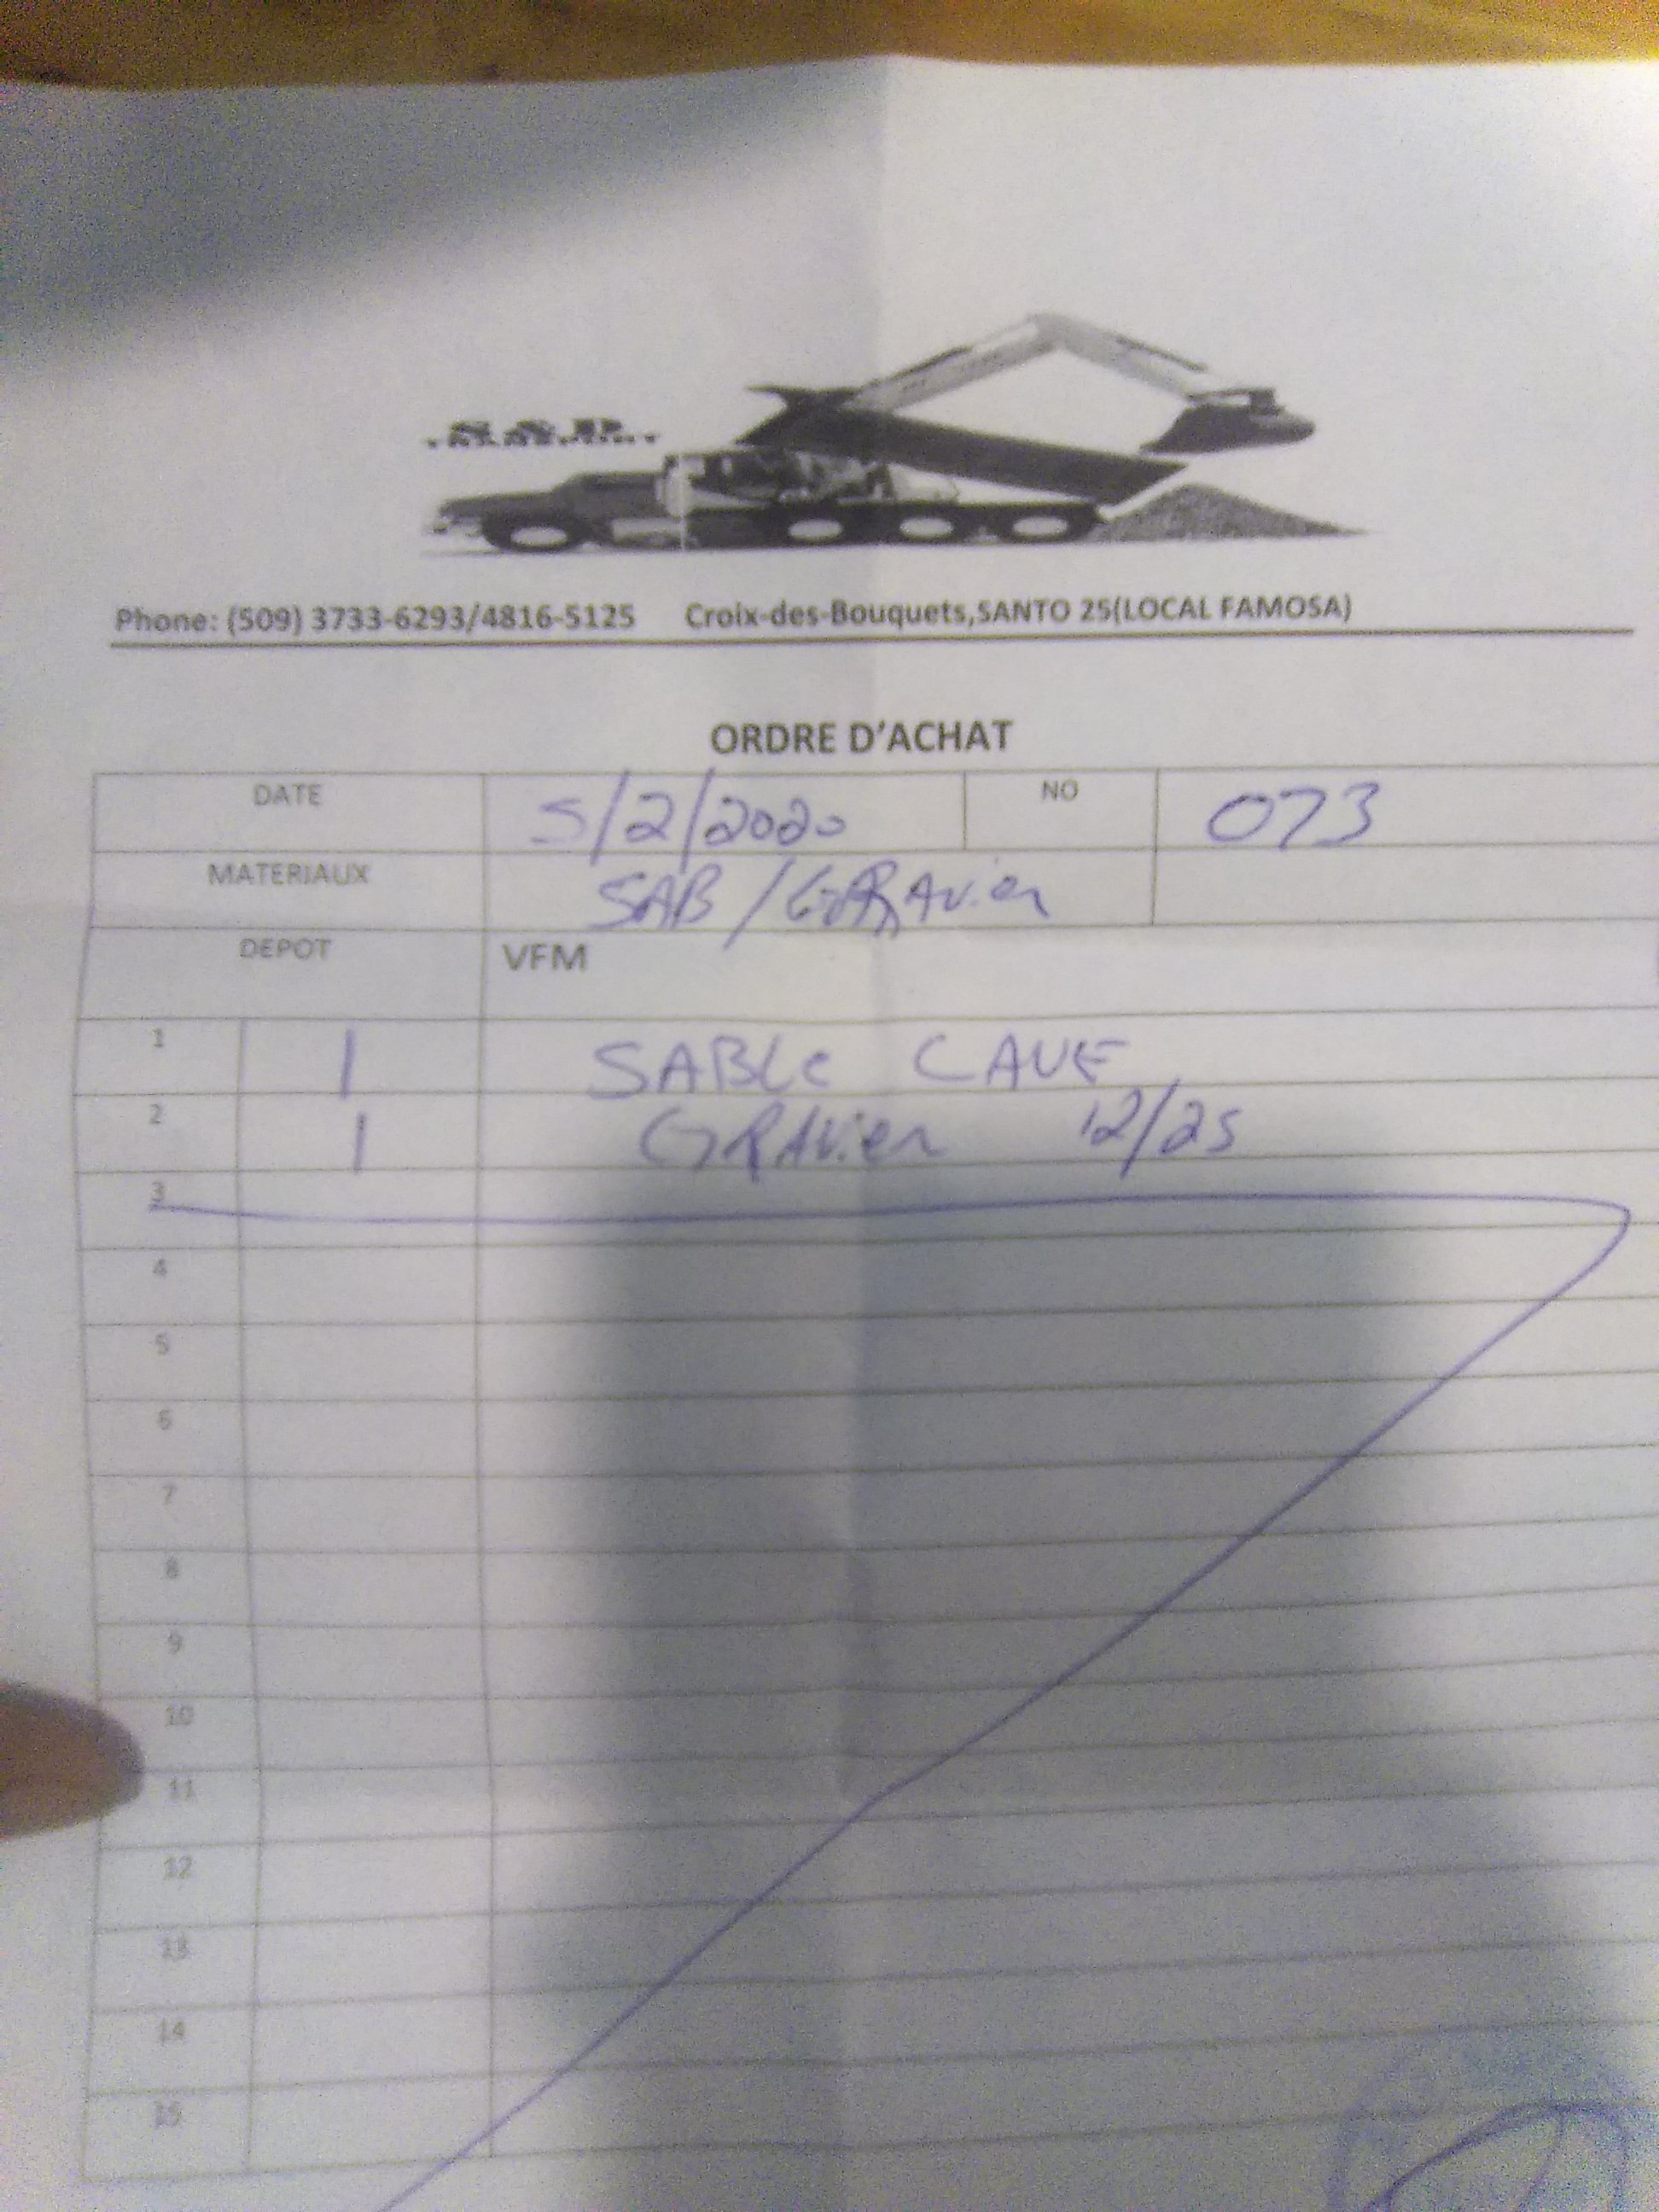 S & D
Phone: (509) 3733-6293/4816-5125 Croix-des-Bouquets,SANTO 25(LOCAL FAMOSA)
ORDRE D'ACHAT
DATE 5/2/2020 NO 073
MATERIAUX SAB/GRAVier
DEPOT VFM
1 1 SABLe CAVE
2 1 GRAVier 12/25
3
4
5
6
7
8
9
10
11
12
13
14
15